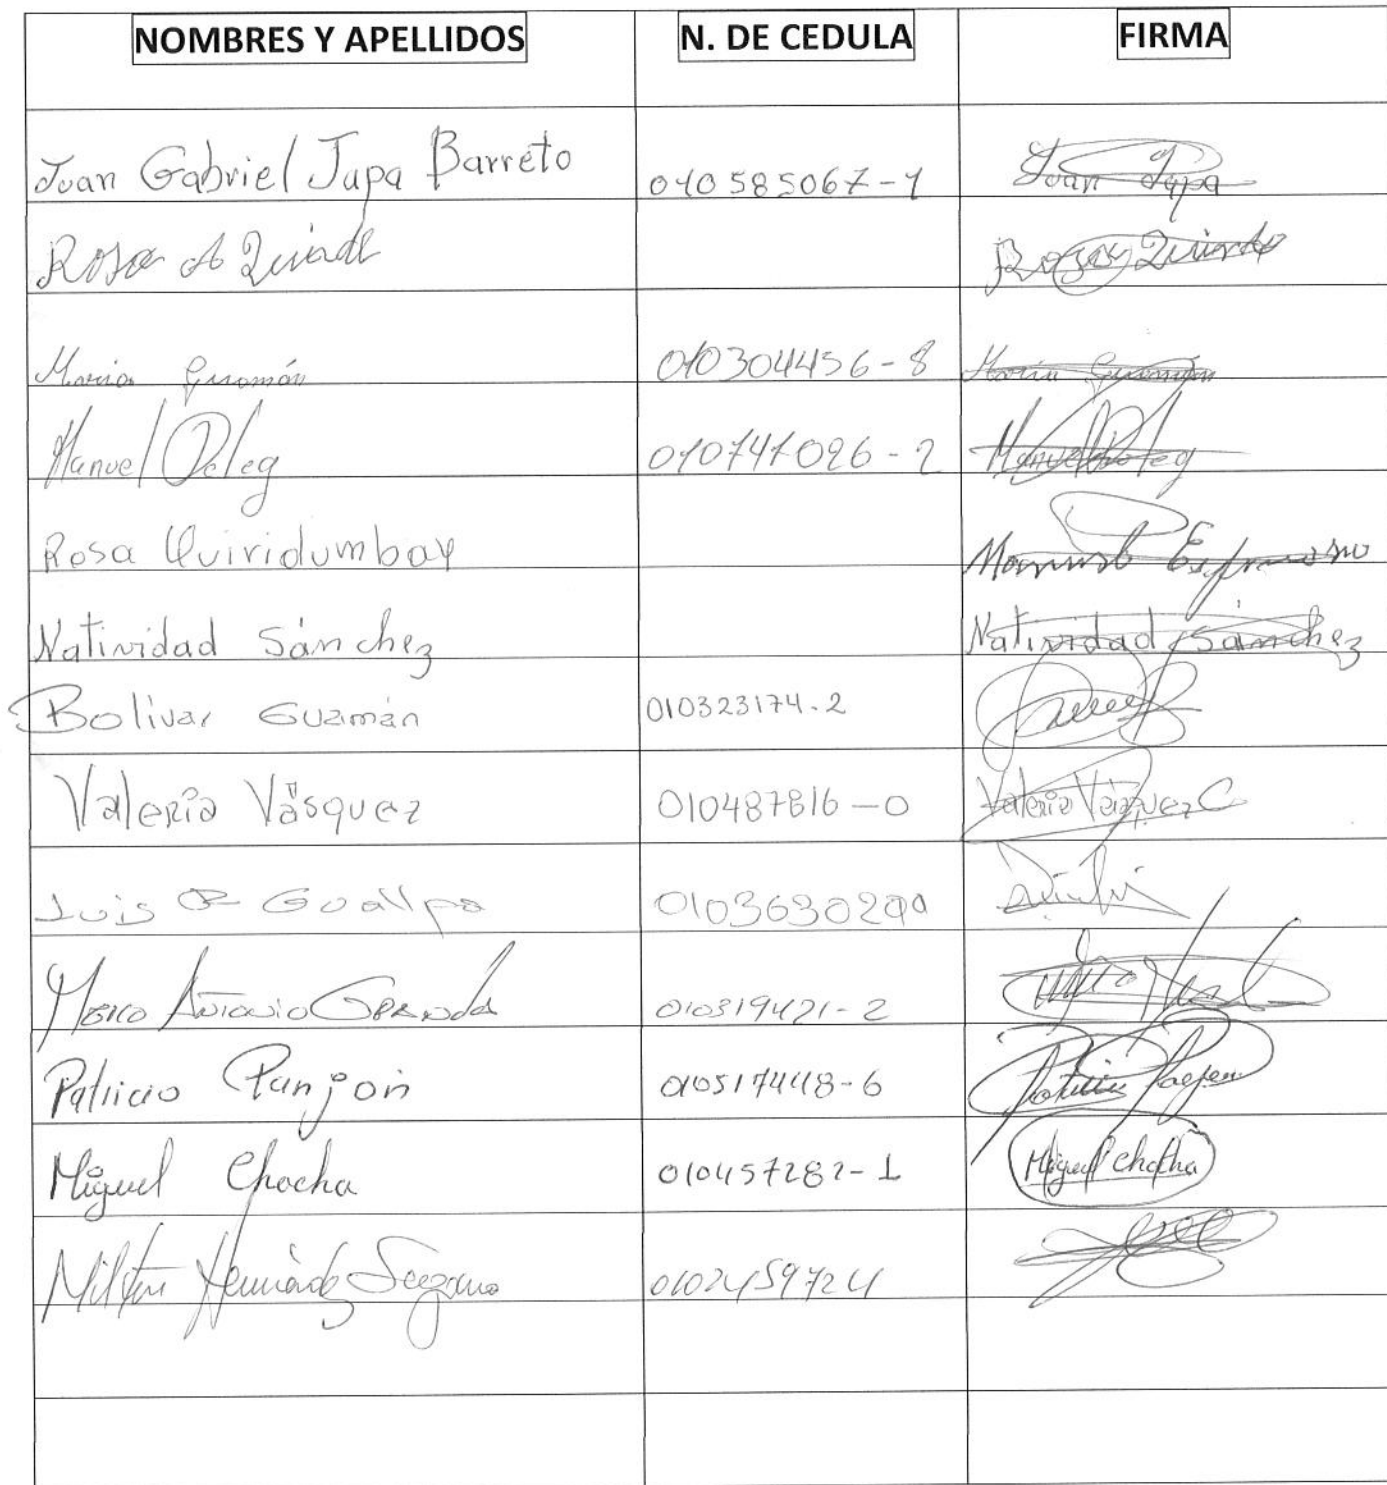 NOMBRES Y APELLIDOS N. DE CEDULA FIRMA
Juan Gabriel Jupa Barreto 010585067-1 Juan Jupa
Rosa A Quinde Rosa Quinde
Maria Guamán 010304456-8 Maria Guamán
Manuel Deleg 010747026-2 Manuel Deleg
Rosa Quiridumbay Manuel
Natividad Sánchez Natividad Sánchez
Bolivar Guamán 010323174-2
Valeria Vásquez 010487816-0 Valeria Vázquez C
Luis Guallpa
Marco Antonio Granda 010319421-2
Patricio Panjon 010517448-6 Patricio
Miguel Chocha 010457282-1 Miguel Chocha
Milton 0102459724